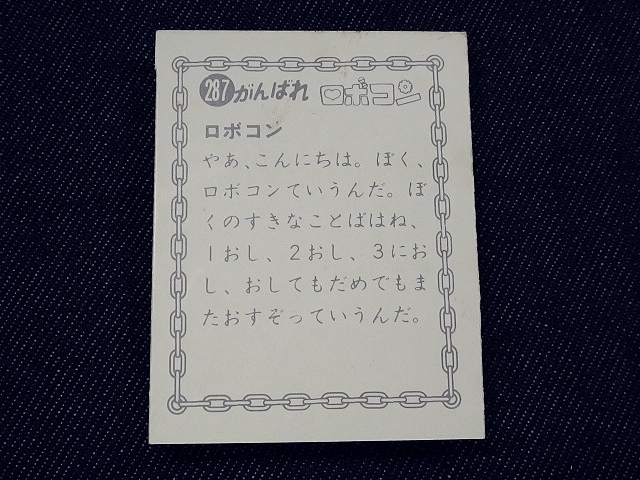 287 がんばれ ロボコン
ロボコン
やあ、こんにちは。ぼく、
ロボコンていうんだ。ぼ
くのすきなことばはね、
1おし、2おし、3にお
し、おしてもだめでもま
たおすぞっていうんだ。